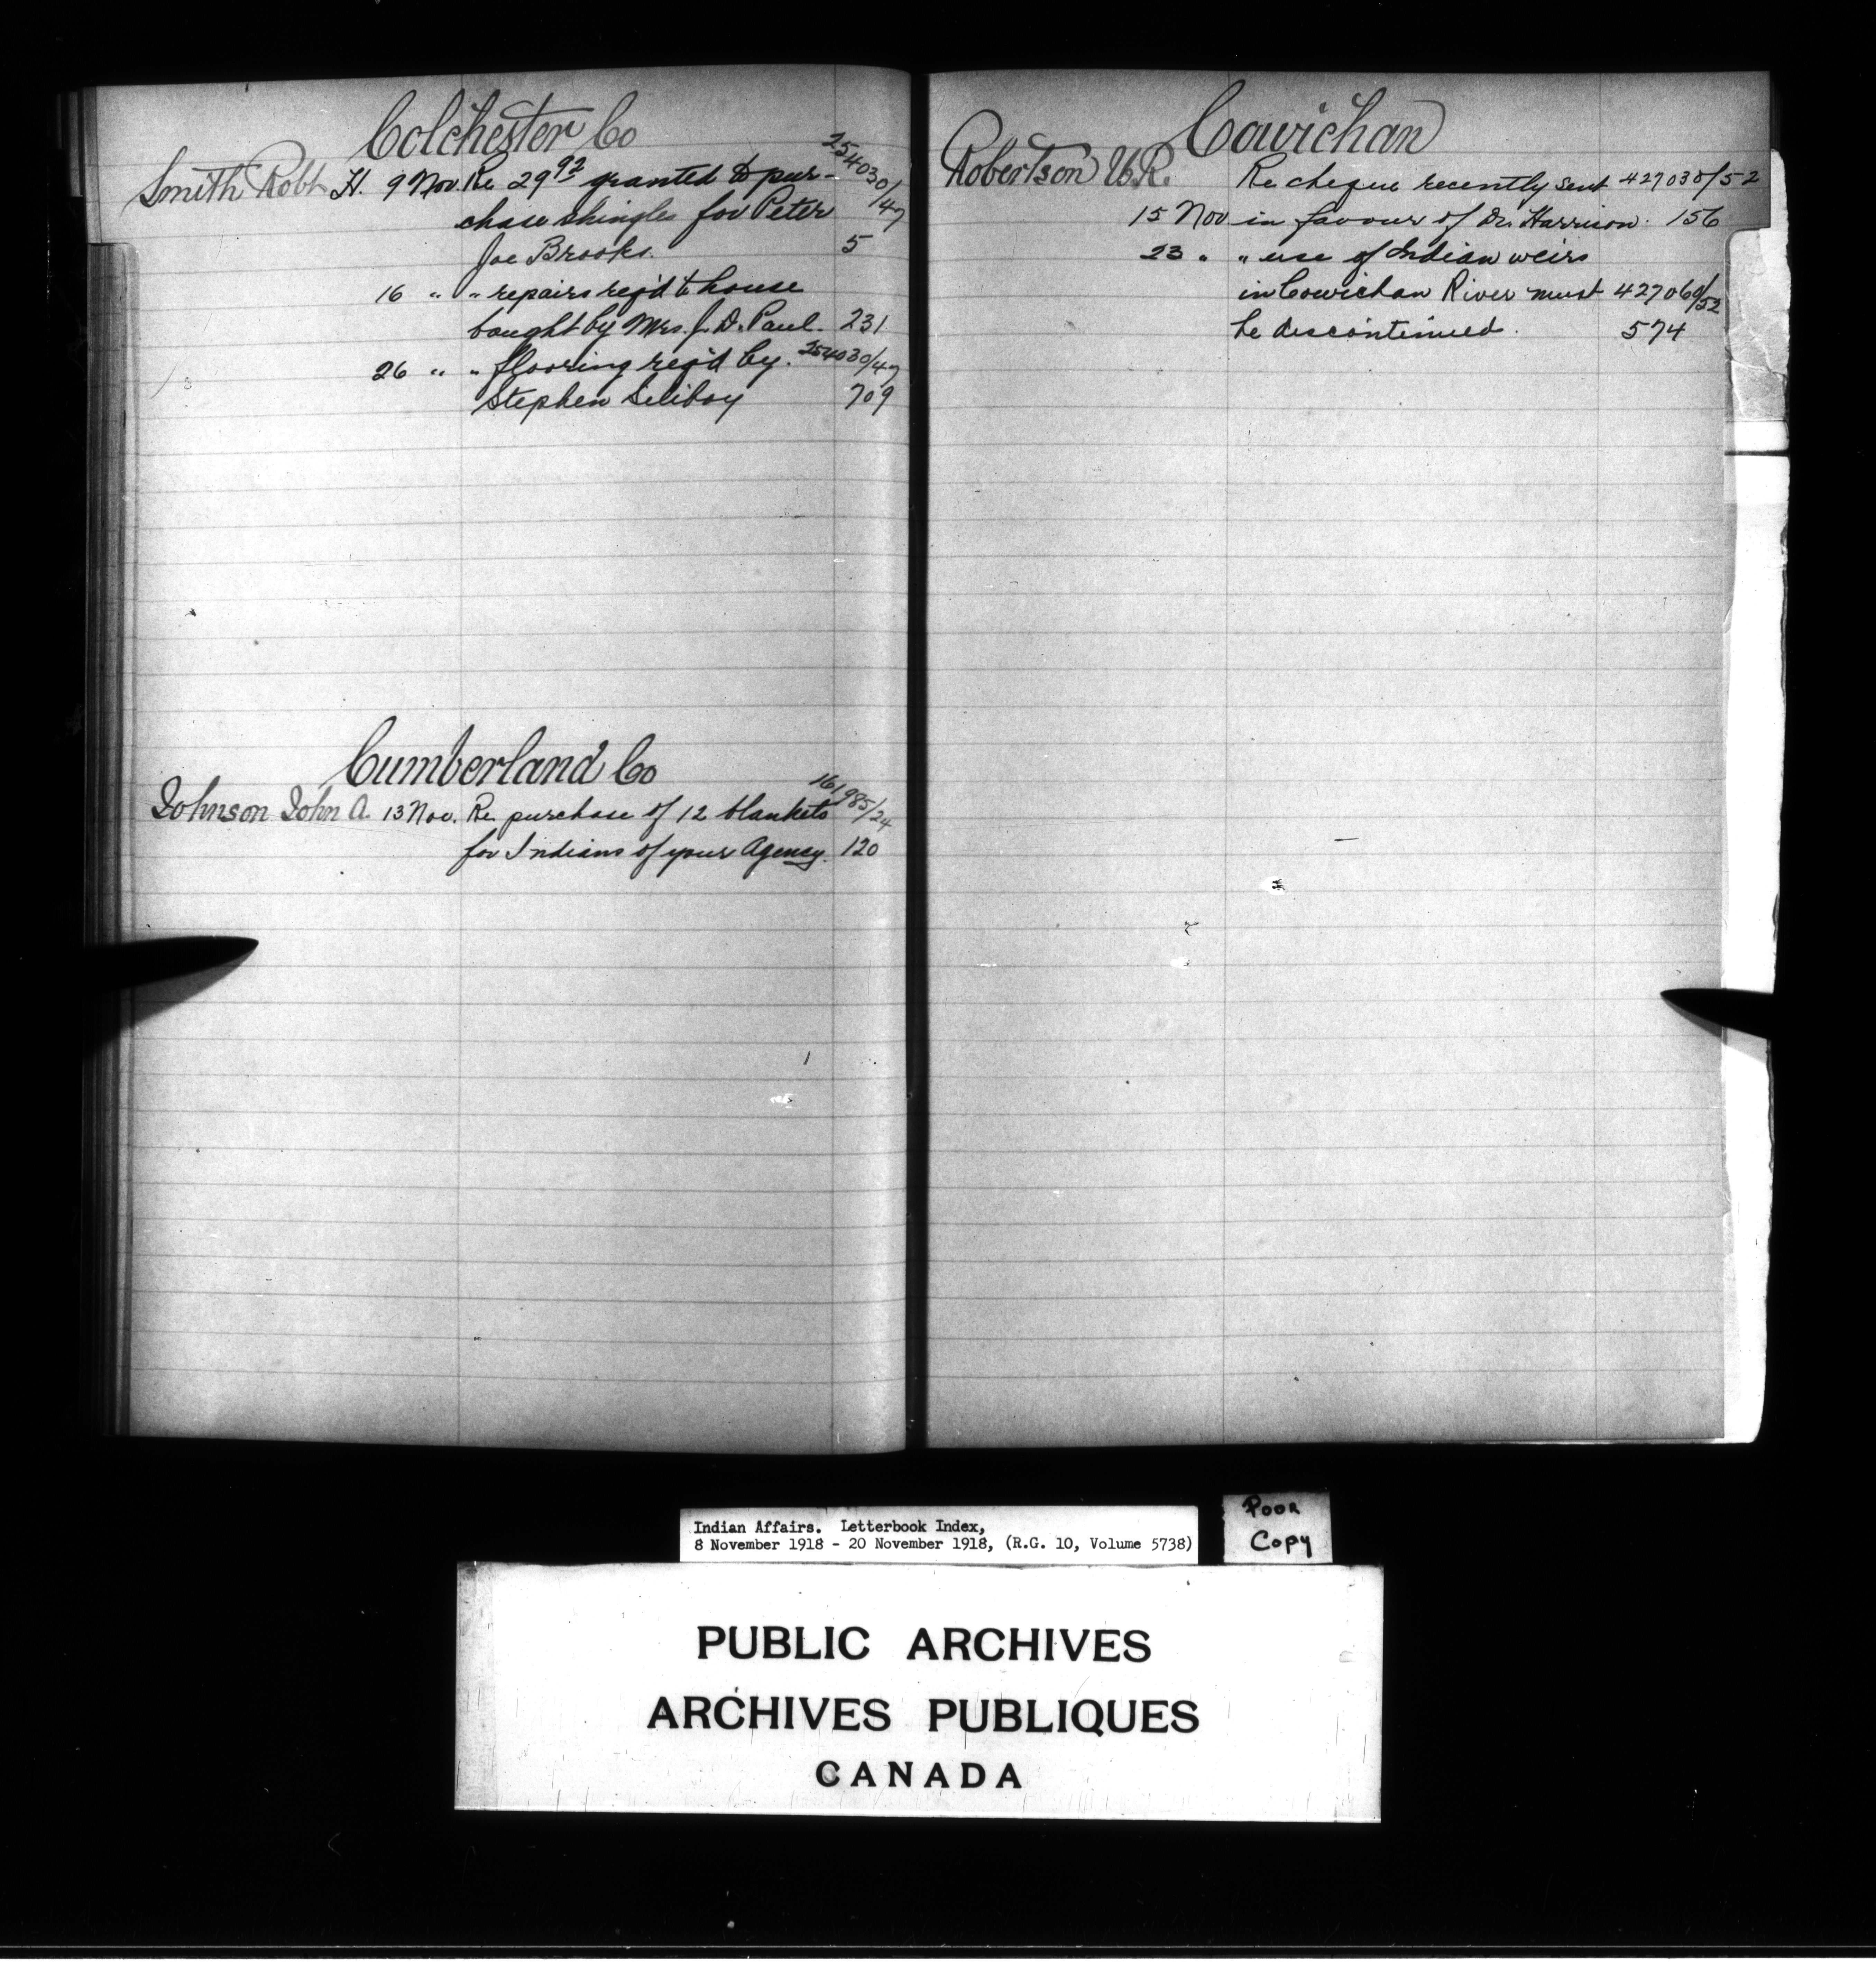 Colchester Co
Smith Robt H. 9 Nov. Re 29 92 granted to pur- 254030/47
chase shingles for Peter
Joe Brooks. 5
16 " " repairs req'd to house
bought by Mrs. J. D. Paul. 231
26 " " flooring req'd by 254030/47
Stephen Siliboy 709
Cumberland Co
Johnson John A. 13 Nov. Re purchase of 12 blankets 161985/24
for Indians of your Agency. 120
Cowichan
Robertson W.R. Re cheque recently sent 427030/52
15 Nov in favour of Dr. Harrison. 156
23 " " use of Indian weirs
in Cowichan River must 427060/52
be discontinued. 574
Indian Affairs. Letterbook Index,
8 November 1918 - 20 November 1918, (R.G. 10, Volume 5738)
POOR
COPY
PUBLIC ARCHIVES
ARCHIVES PUBLIQUES
CANADA